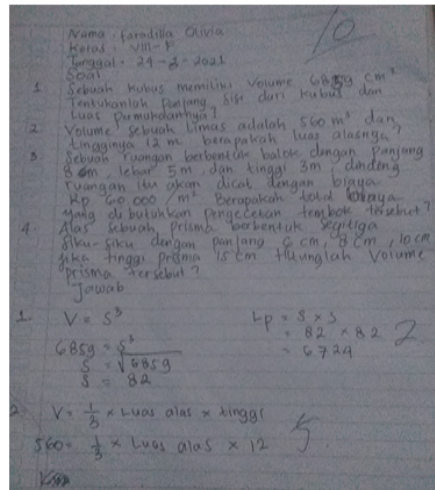 10
Nama : Faradilla Olivia
Kelas : VIII - F
Tanggal : 24 - 2 - 2021
Soal
1 Sebuah kubus memiliki volume 6859 cm³
Tentukanlah panjang sisi dari kubus dan
luas pumukdannya?
2 Volume sebuah Limas adalah 560 m³ dan
tingginya 12 m berapakah luas alasnya?
3 Sebuah ruangan berbentuk balok dengan panjang
8 m, lebar 5 m, dan tinggi 3m, dinding
ruangan itu akan dicat dengan biaya
Rp 60.000 / m² Berapakah total biaya
yang di butuhkan pengecetan tembok tersebut?
4. Alas sebuah prisma berbentuk segitiga
siku-siku dengan panjang 6 cm, 8 cm, 10 cm
jika tinggi prisma 15 cm Hitunglah Volume
prisma tersebut?
Jawab
1. V = S³
6859 = S³
S = √6859
S = 82
Lp = S × S
= 82 × 82
= 6724
2
2 V = 1/3 × Luas alas × tinggi
560 = 1/3 × Luas alas × 12
5